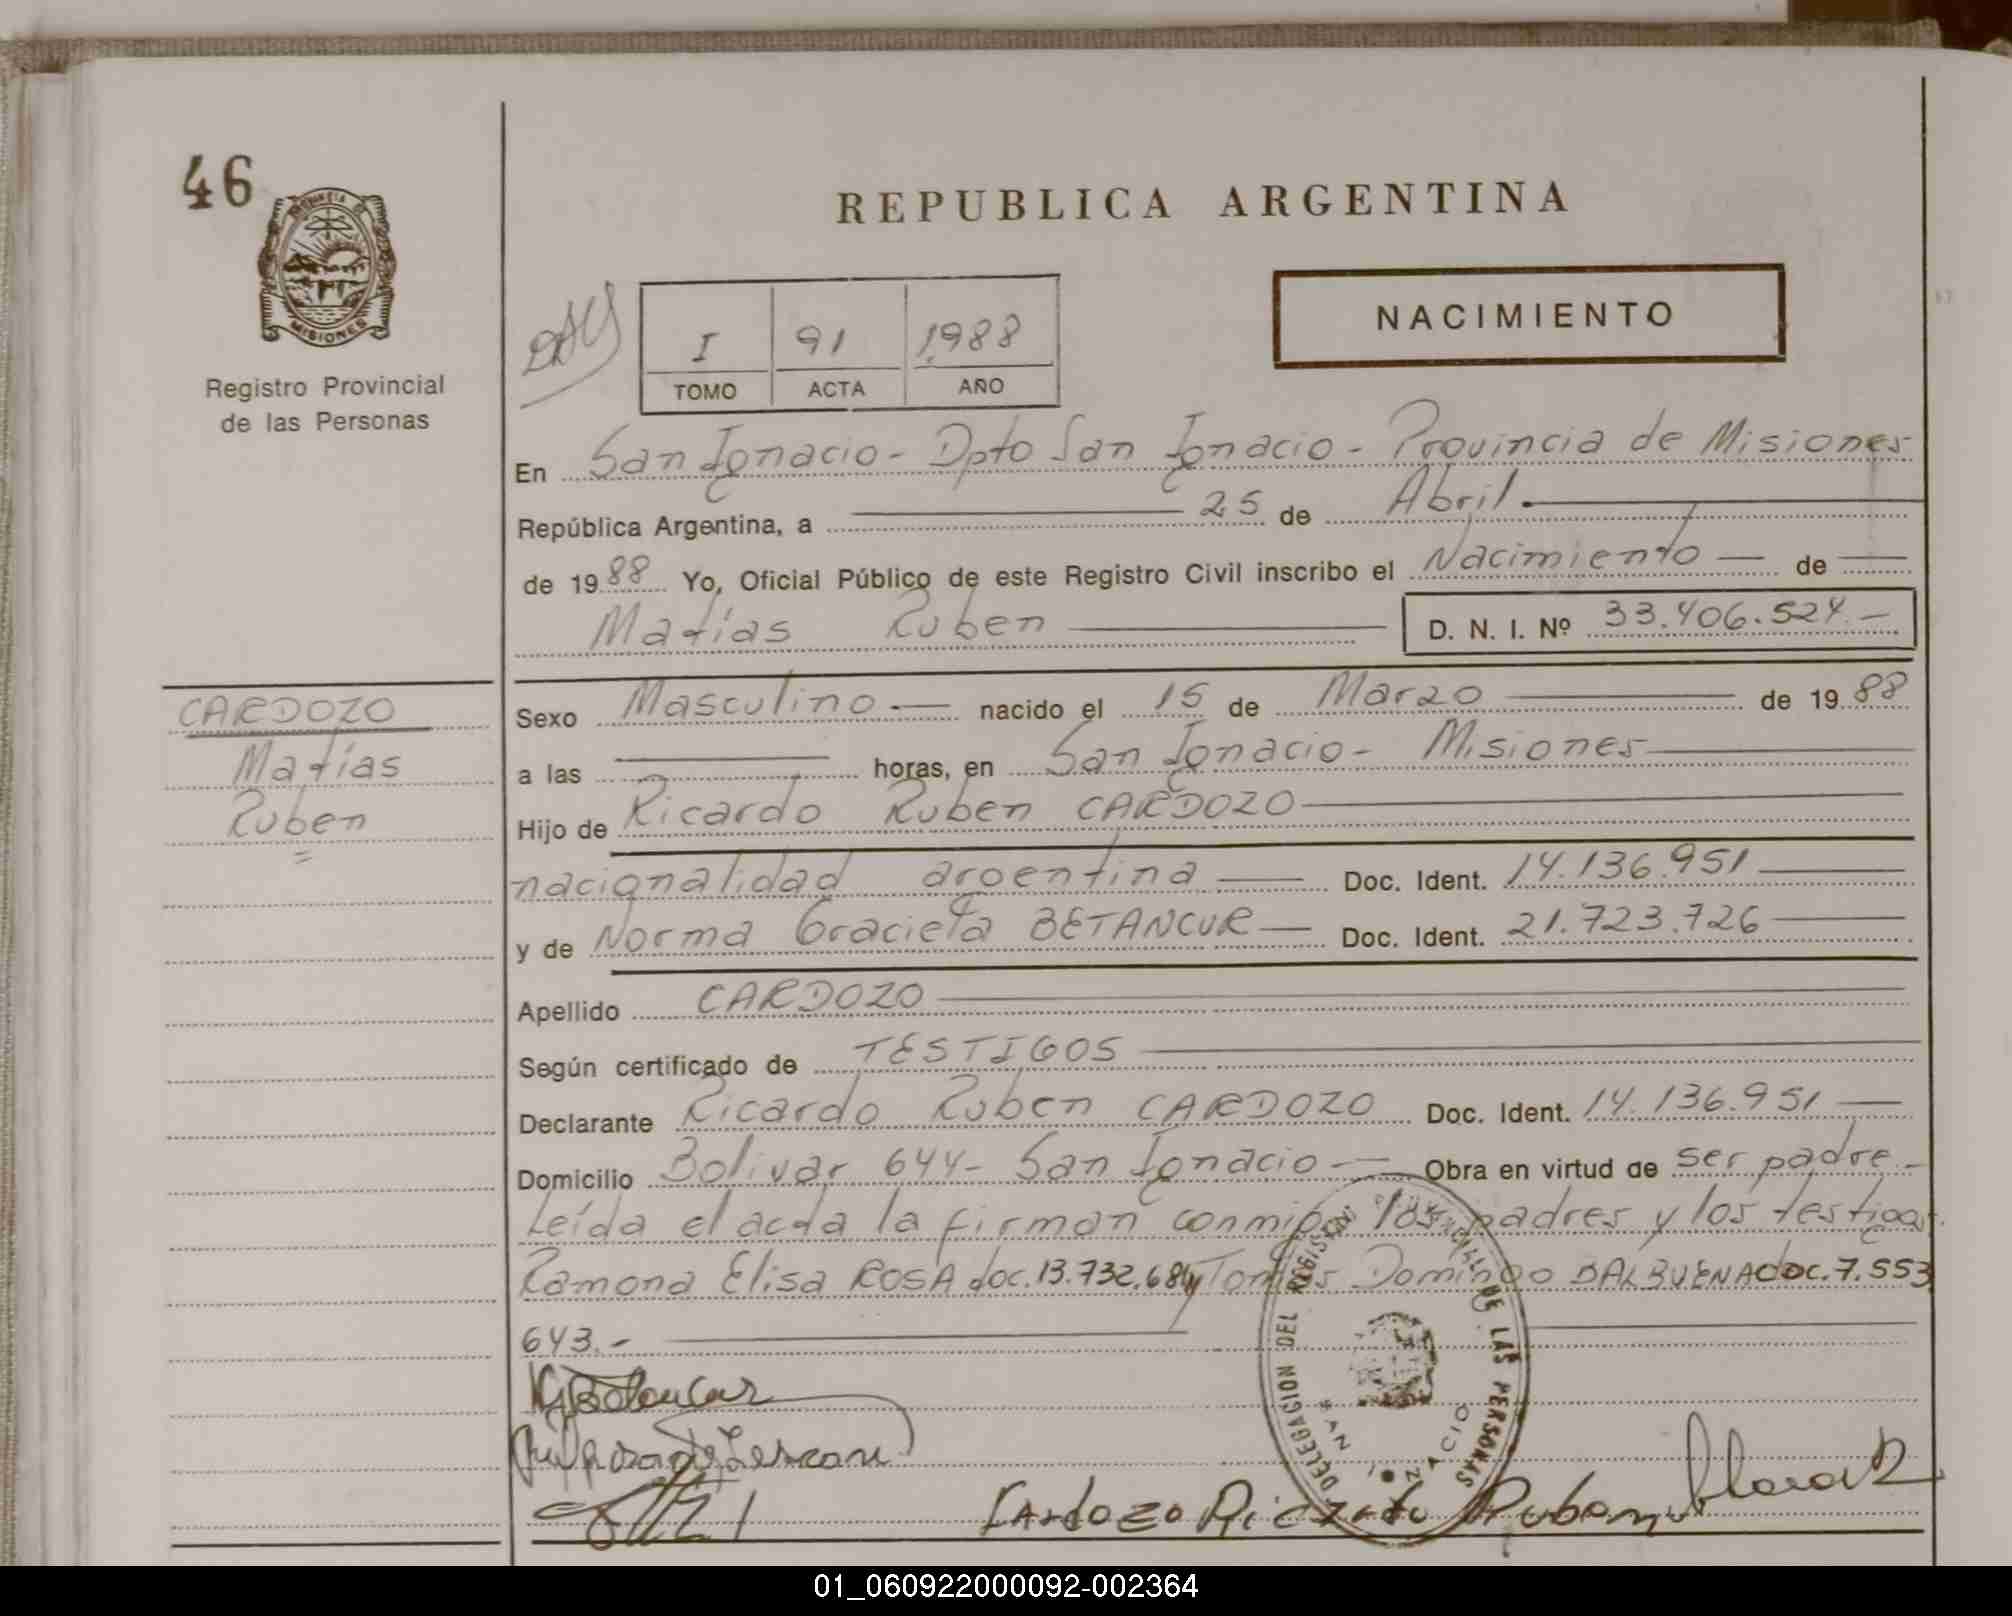 46
PROVINCIA DE
MISIONES
Registro Provincial
de las Personas
REPUBLICA ARGENTINA
NACIMIENTO
I 91 1988
TOMO ACTA AÑO
En San Ignacio - Dpto San Ignacio - Provincia de Misiones
República Argentina, a 25 de Abril
de 1988 Yo, Oficial Público de este Registro Civil inscribo el Nacimiento de
Matías Ruben D. N. I. Nº 33.406.524.-
CARDOZO
Matías
Ruben
Sexo Masculino nacido el 15 de Marzo de 1988
a las horas, en San Ignacio - Misiones
Hijo de Ricardo Ruben CARDOZO
nacionalidad argentina Doc. Ident. 14.136.951
y de Norma Graciela BETANCUR Doc. Ident. 21.723.726
Apellido CARDOZO
Según certificado de TESTIGOS
Declarante Ricardo Ruben CARDOZO Doc. Ident. 14.136.951
Domicilio Bolivar 644- San Ignacio - Obra en virtud de ser padre -
Leída el acta la firman conmigo los padres y los testigos
Ramona Elisa ROSA doc. 13.732.684 y Tomas Domingo BALBUENA doc. 7.553
643.-
DELEGACION DEL REGISTRO PROVINCIAL DE LAS PERSONAS
SAN IGNACIO
Cardozo Ricardo Ruben
01_060922000092-002364